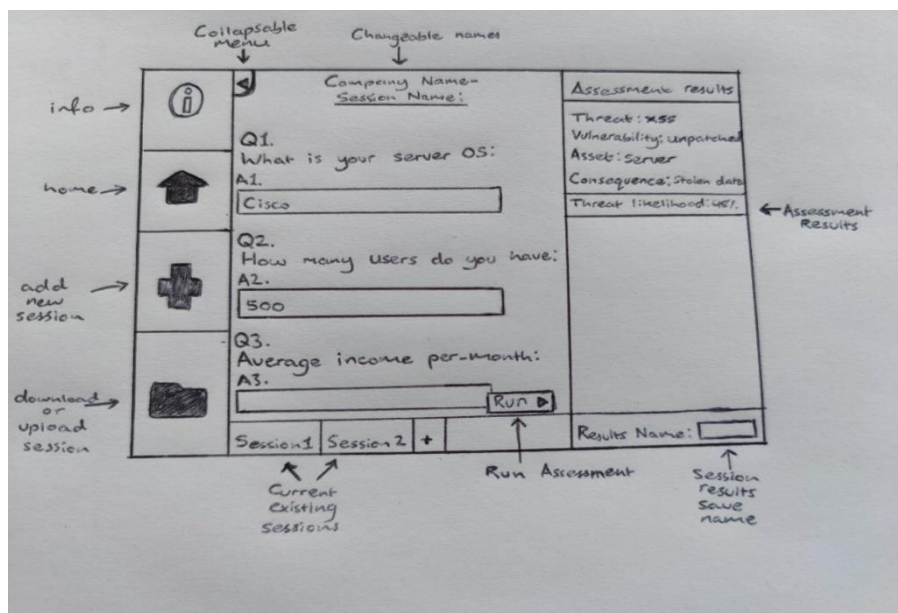 Collapsable
menu
Changeable names
info
home
add
new
session
download
or
upload
session
Company Name-
Session Name:
Q1.
What is your server OS:
A1.
Cisco
Q2.
How many users do you have:
A2.
500
Q3.
Average income per-month:
A3.
Run
Session1
Session2
+
Assessment results
Threat: XSS
Vulnerability: unpatched
Asset: Server
Consequence: Stolen data
Threat likelihood: 45%
Results Name:
Assessment
Results
Current
existing
sessions
Run Assessment
Session
results
save
name